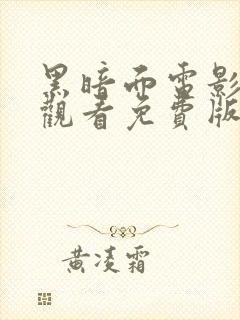 黑暗而電影
觀看免費版
黃凌霜